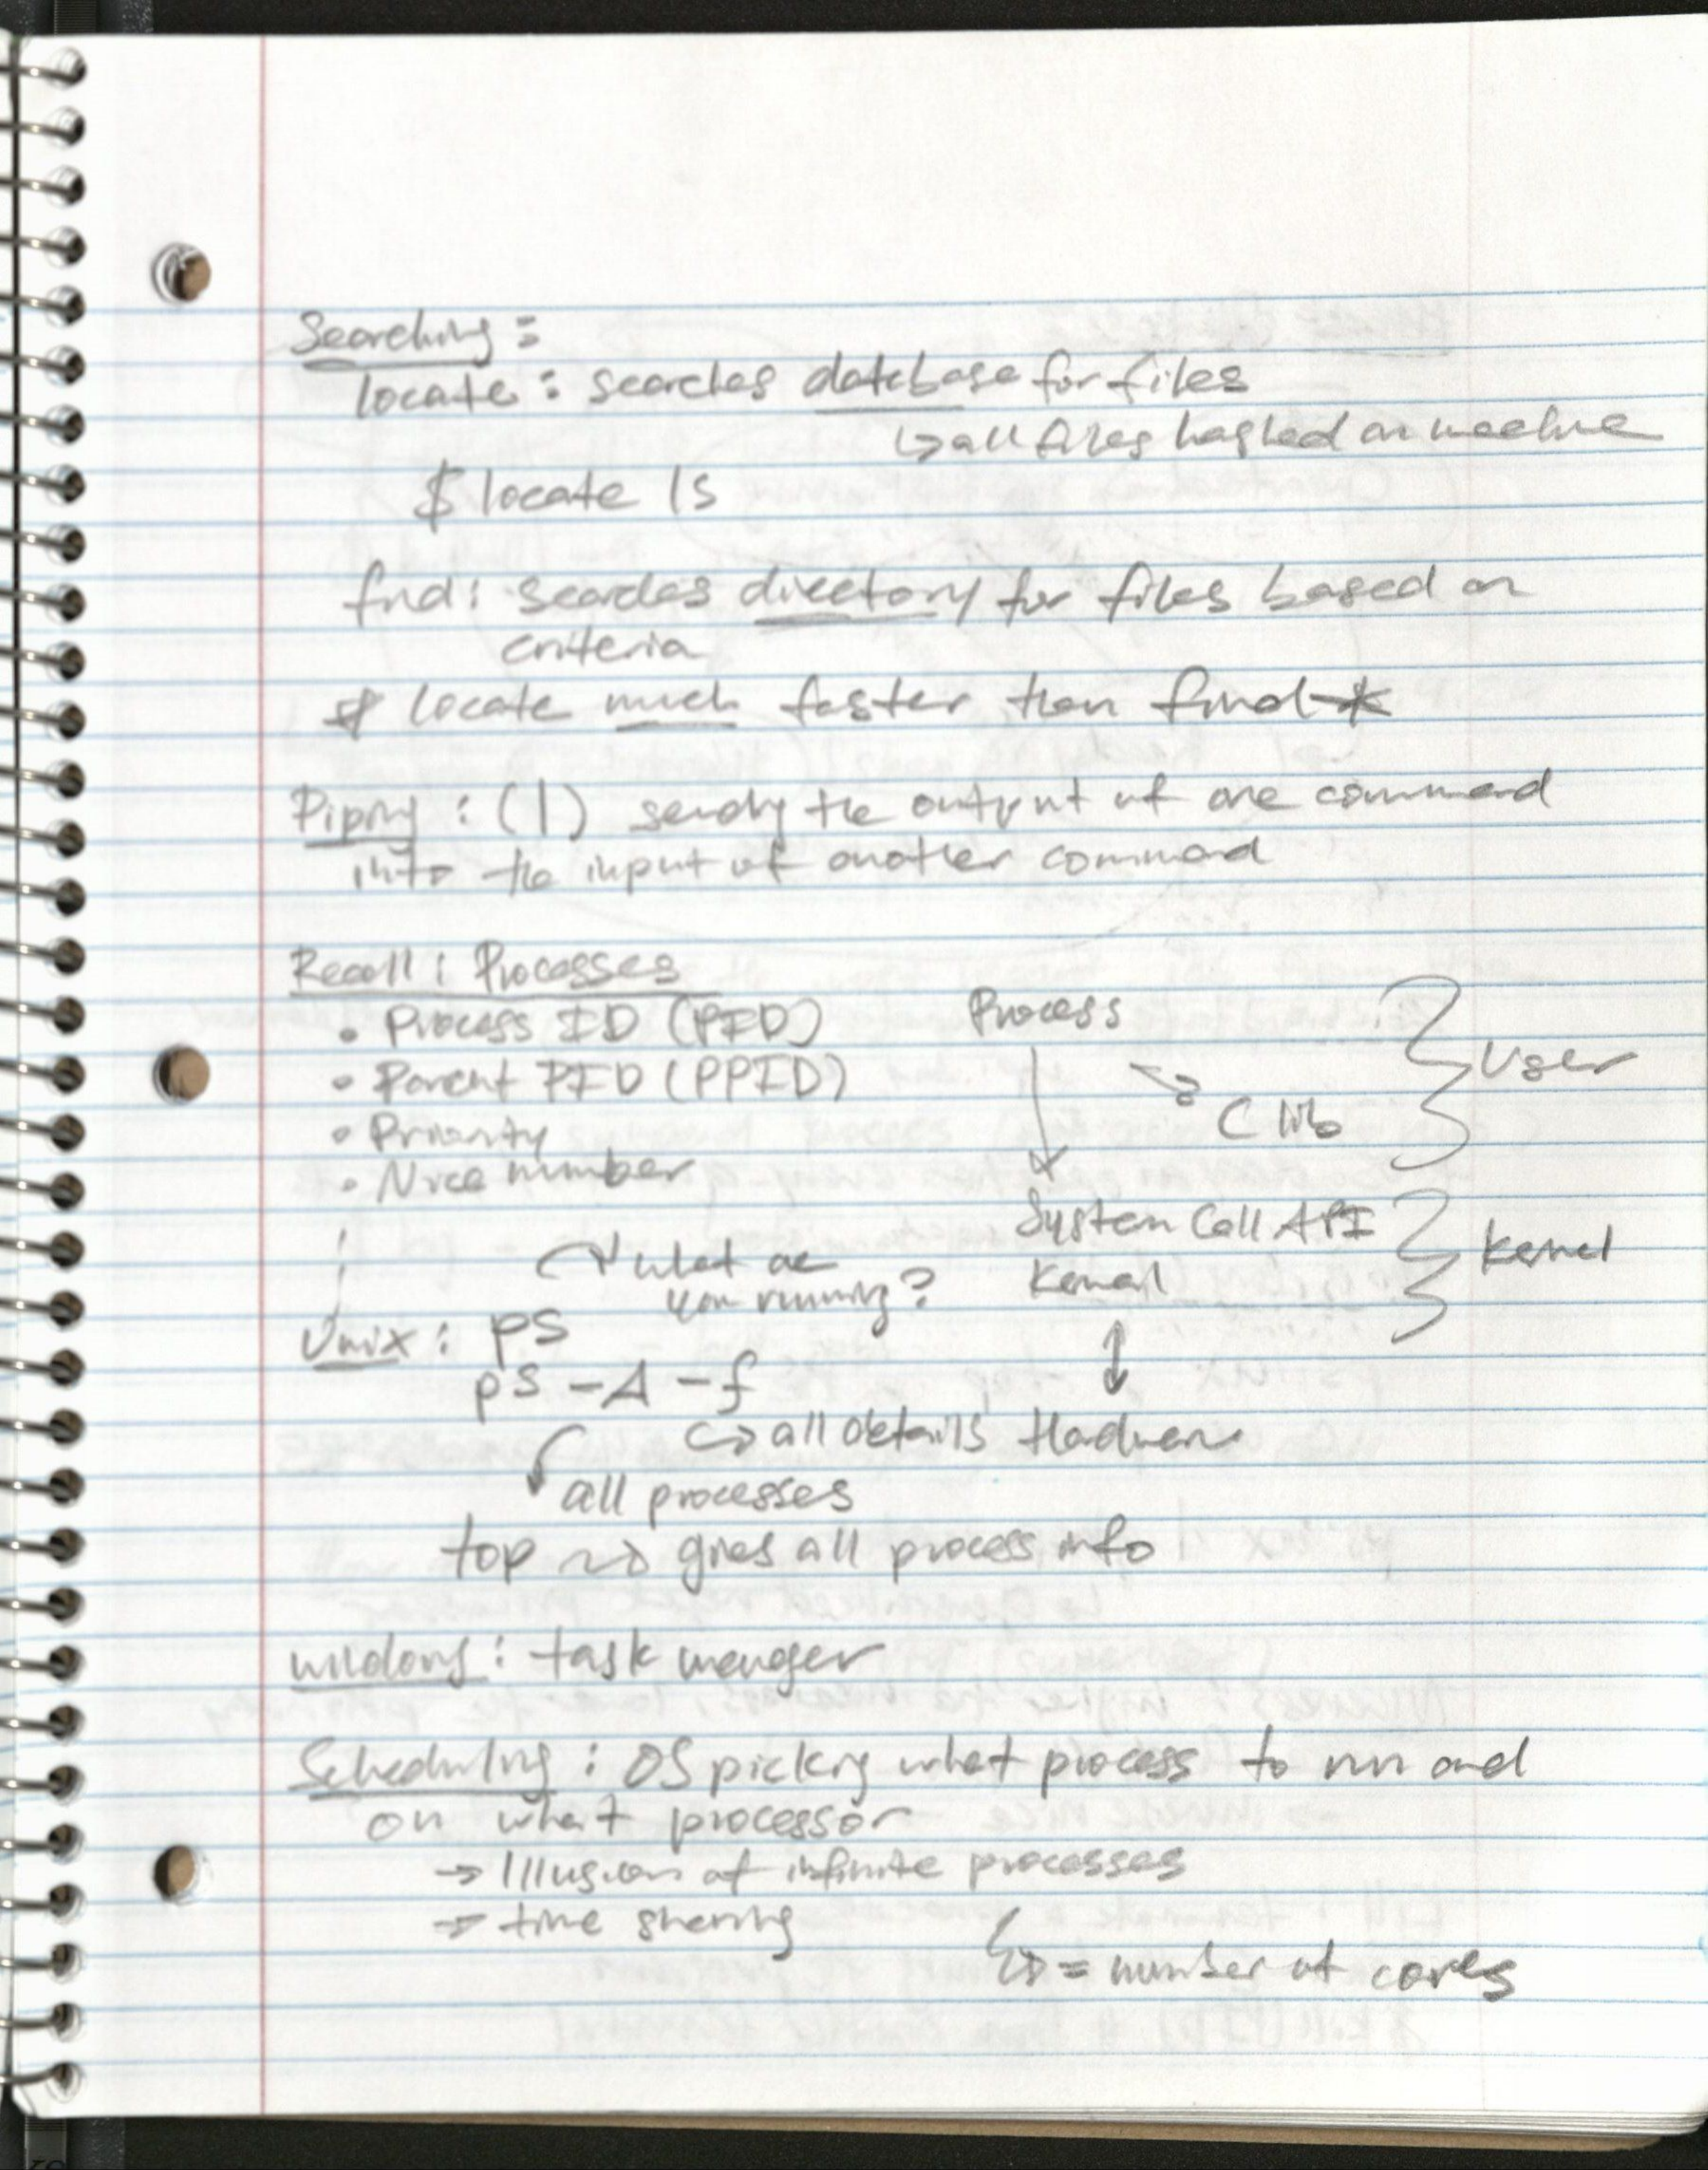 Searching:
locate: searches database for files
↳ all files hashed on machine
$ locate ls
find: searches directory for files based on
criteria
* locate much faster than find *
Piping: (|) sending the output of one command
into the input of another command
Recall: Processes
• Process ID (PID)
• Parent PID (PPID)
• Priority
• Nice number
Process
C lib
User
System Call API
Kernel
Kernel
Hardware
what are
you running?
Unix: ps
ps -A -f
↳ all details
all processes
top → gives all process info
Windows: task manager
Scheduling: OS picking what process to run and
on what processor
→ Illusion of infinite processes
→ time sharing
↳ = number of cores